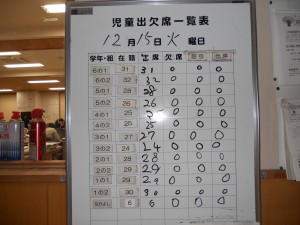 児童出欠席一覧表
12月15日 火 曜日
学年・組 在籍 出席 欠席
6の1 31 31 0 0 0
6の2 32 32 0 0 0
5の1 28 28 0 0 0
5の2 26 26 0 0 0
4の1 25 25 0 0 0
4の2 25 25 0 0 0
3の1 27 27 0 0 0
3の2 24 24 0 0 0
2の1 28 28 0 0 0
2の2 29 29 0 0 0
1の1 29 29 0 0 0
1の2 30 30 0 0 0
6 6 0 0 0